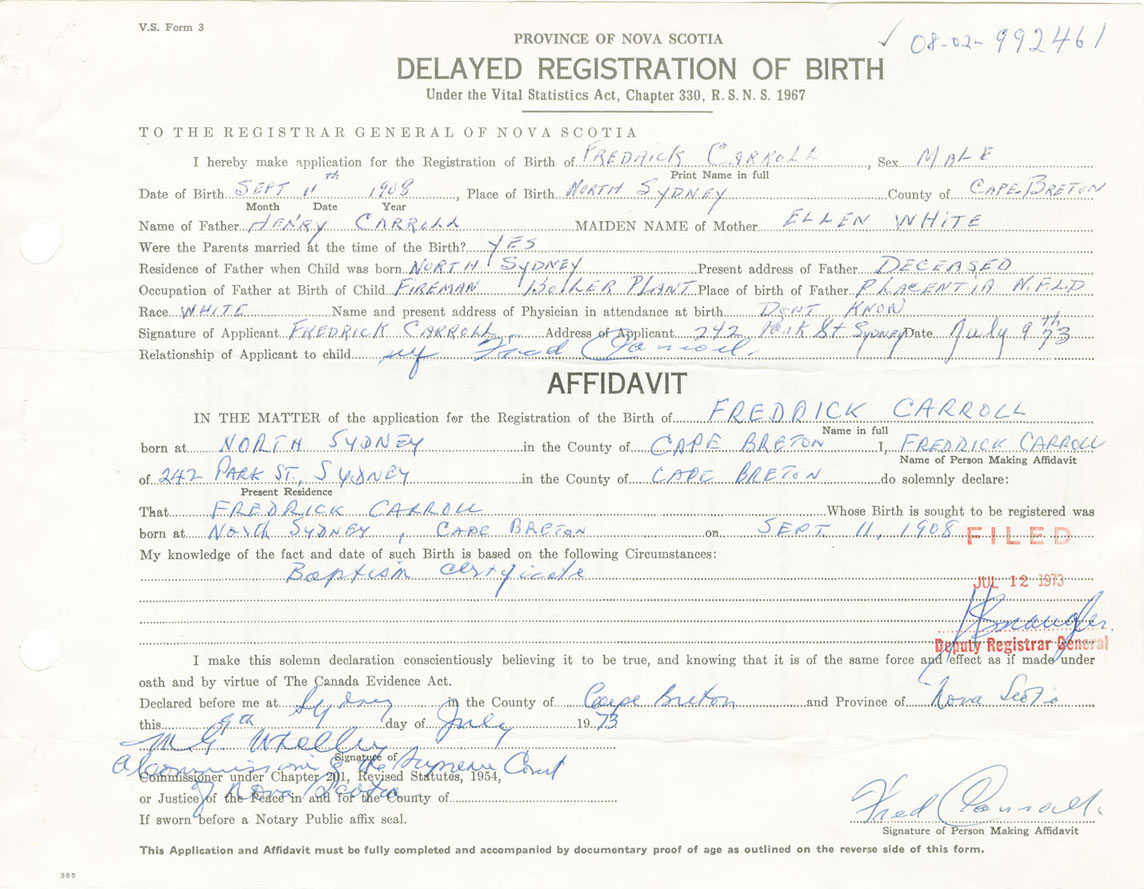 V.S. Form 3
08-02-992461
PROVINCE OF NOVA SCOTIA
DELAYED REGISTRATION OF BIRTH
Under the Vital Statistics Act, Chapter 330, R. S. N. S. 1967
TO THE REGISTRAR GENERAL OF NOVA SCOTIA
I hereby make application for the Registration of Birth of FREDRICK CARROLL, Sex MALE
Print Name in full
Date of Birth SEPT 11th 1908, Place of Birth NORTH SYDNEY County of CAPE-BRETON
Month Date Year
Name of Father HENRY CARROLL MAIDEN NAME of Mother ELLEN WHITE
Were the Parents married at the time of the Birth? YES
Residence of Father when Child was born NORTH SYDNEY Present address of Father DECEASED
Occupation of Father at Birth of Child FIREMAN BOILER PLANT Place of birth of Father PLACENTIA N.FLD
Race WHITE Name and present address of Physician in attendance at birth DONT KNOW
Signature of Applicant FREDRICK CARROLL Address of Applicant 242 Park St Sydney Date July 9th 73
Relationship of Applicant to child Fred Carroll.
AFFIDAVIT
IN THE MATTER of the application for the Registration of the Birth of FREDRICK CARROLL
Name in full
born at NORTH SYDNEY in the County of CAPE BRETON I, FREDRICK CARROLL
Name of Person Making Affidavit
of 242 PARK ST., SYDNEY in the County of CAPE BRETON do solemnly declare:
Present Residence
That FREDRICK CARROLL Whose Birth is sought to be registered was
born at North SYDNEY, CAPE BRETON on SEPT. 11, 1908
FILED
My knowledge of the fact and date of such Birth is based on the following Circumstances:
Baptism Certificate
JUL 12 1973
Deputy Registrar General
I make this solemn declaration conscientiously believing it to be true, and knowing that it is of the same force and effect as if made under
oath and by virtue of The Canada Evidence Act.
Declared before me at Sydney in the County of Cape Breton and Province of Nova Scotia
this 9th day of July 1973
M G Whelley
Signature of
A Commissioner of the Supreme Court
Commissioner under Chapter 201, Revised Statutes, 1954,
of Nova Scotia
or Justice of the Peace in and for the County of
If sworn before a Notary Public affix seal.
Fred Carroll.
Signature of Person Making Affidavit
This Application and Affidavit must be fully completed and accompanied by documentary proof of age as outlined on the reverse side of this form.
385